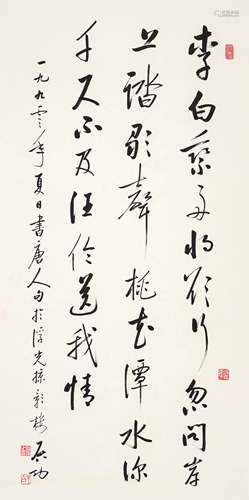 李白乘舟將欲行忽聞岸
上踏歌聲桃花潭水深
千尺不及汪倫送我情
一九九零年夏日書唐人句於浮光掠影樓 启功